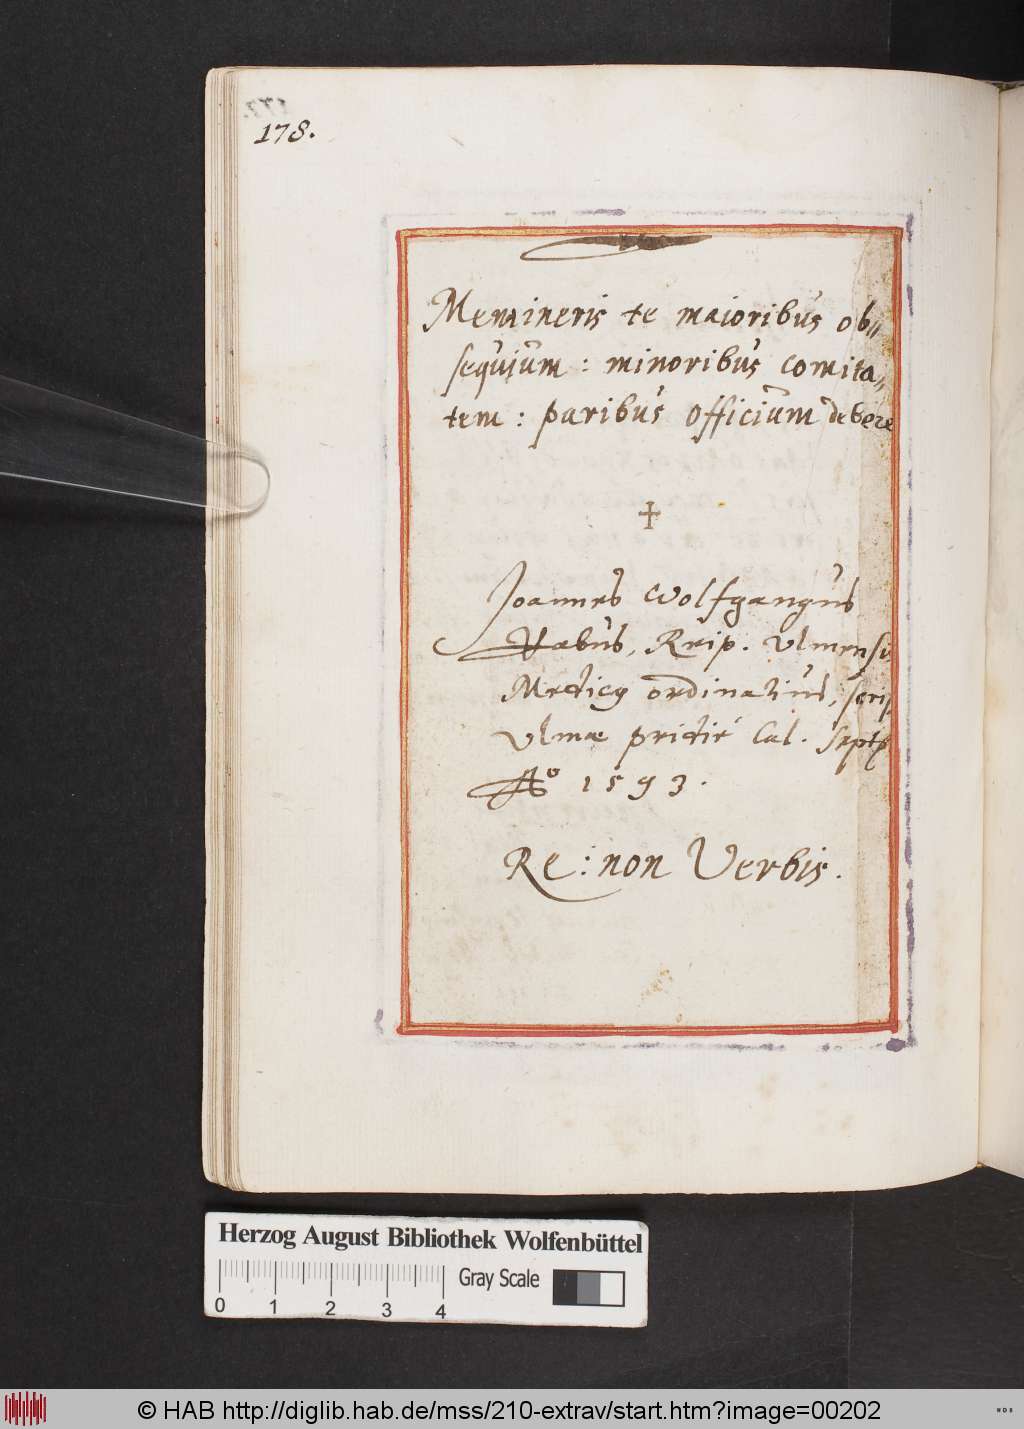 178.
Memineris te maioribus ob⸗
sequium : minoribus comita⸗
tem : paribus officium debere
Joannes Wolfgangus
Rabus, Reip. Ulmensis
Medicus ordinarius, scrip.
Ulmae pridie Cal. Septb
Ao 1593.
Re : non Verbis.
Herzog August Bibliothek Wolfenbüttel
Gray Scale
0 1 2 3 4
© HAB http://diglib.hab.de/mss/210-extrav/start.htm?image=00202